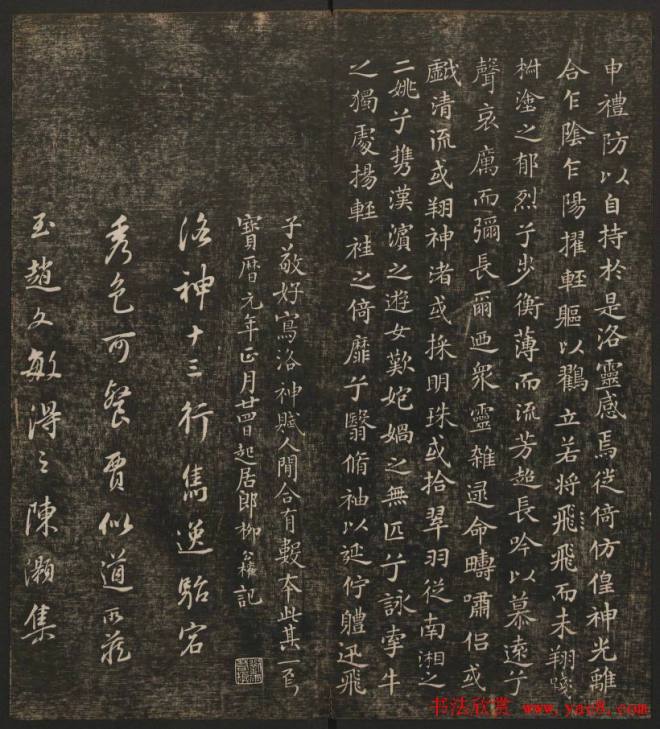 申禮防以自持於是洛靈感焉徙倚仿偟神光離
合乍陰乍陽擢輕軀以鸛立若將飛飛而未翔踐
椒塗之郁烈兮步衡薄而流芳超長吟以慕遠兮
聲哀厲而彌長爾迺衆靈雜遝命疇嘯侶或
戲清流或翔神渚或採明珠或拾翠羽從南湘之
二姚兮携漢濱之遊女歎妑媧之無匹兮詠牽牛
之獨處揚輕袿之倚靡兮翳脩袖以延佇軆迅飛
子敬好寫洛神賦人閒合有數本此其一焉
寶曆元年正月廿四日起居郎柳公權記
洛神十三行雋逸駘宕
秀色可餐賈似道所藏
至趙文敏得之陳灝集
书法欣赏 www.yac8.com